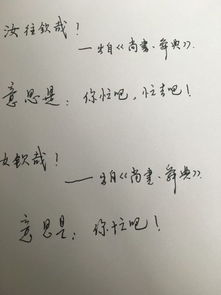 汝往钦哉！
——出自《尚书·舜典》.
意思是：你忙吧，忙去吧！
女钦哉！
——出自《尚书·舜典》.
意思是：你忙吧！